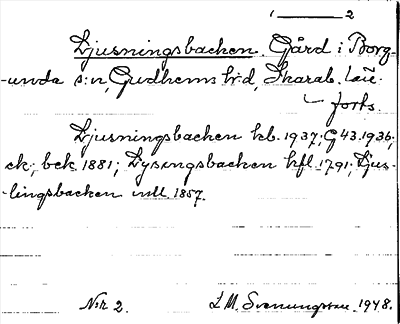 1 ——— 2
Djusningsbacken. Gård i Borg-
unda s:n, Gudhems h:d, Skarab. län.
forts.
Djusningsbacken kb. 1937; G 43. 1936;
ek. bck. 1881; Dysingsbacken hfl. 1791; Djus-
lingsbacken 1857.
N:r 2. L M. Svenungsson. 1948.